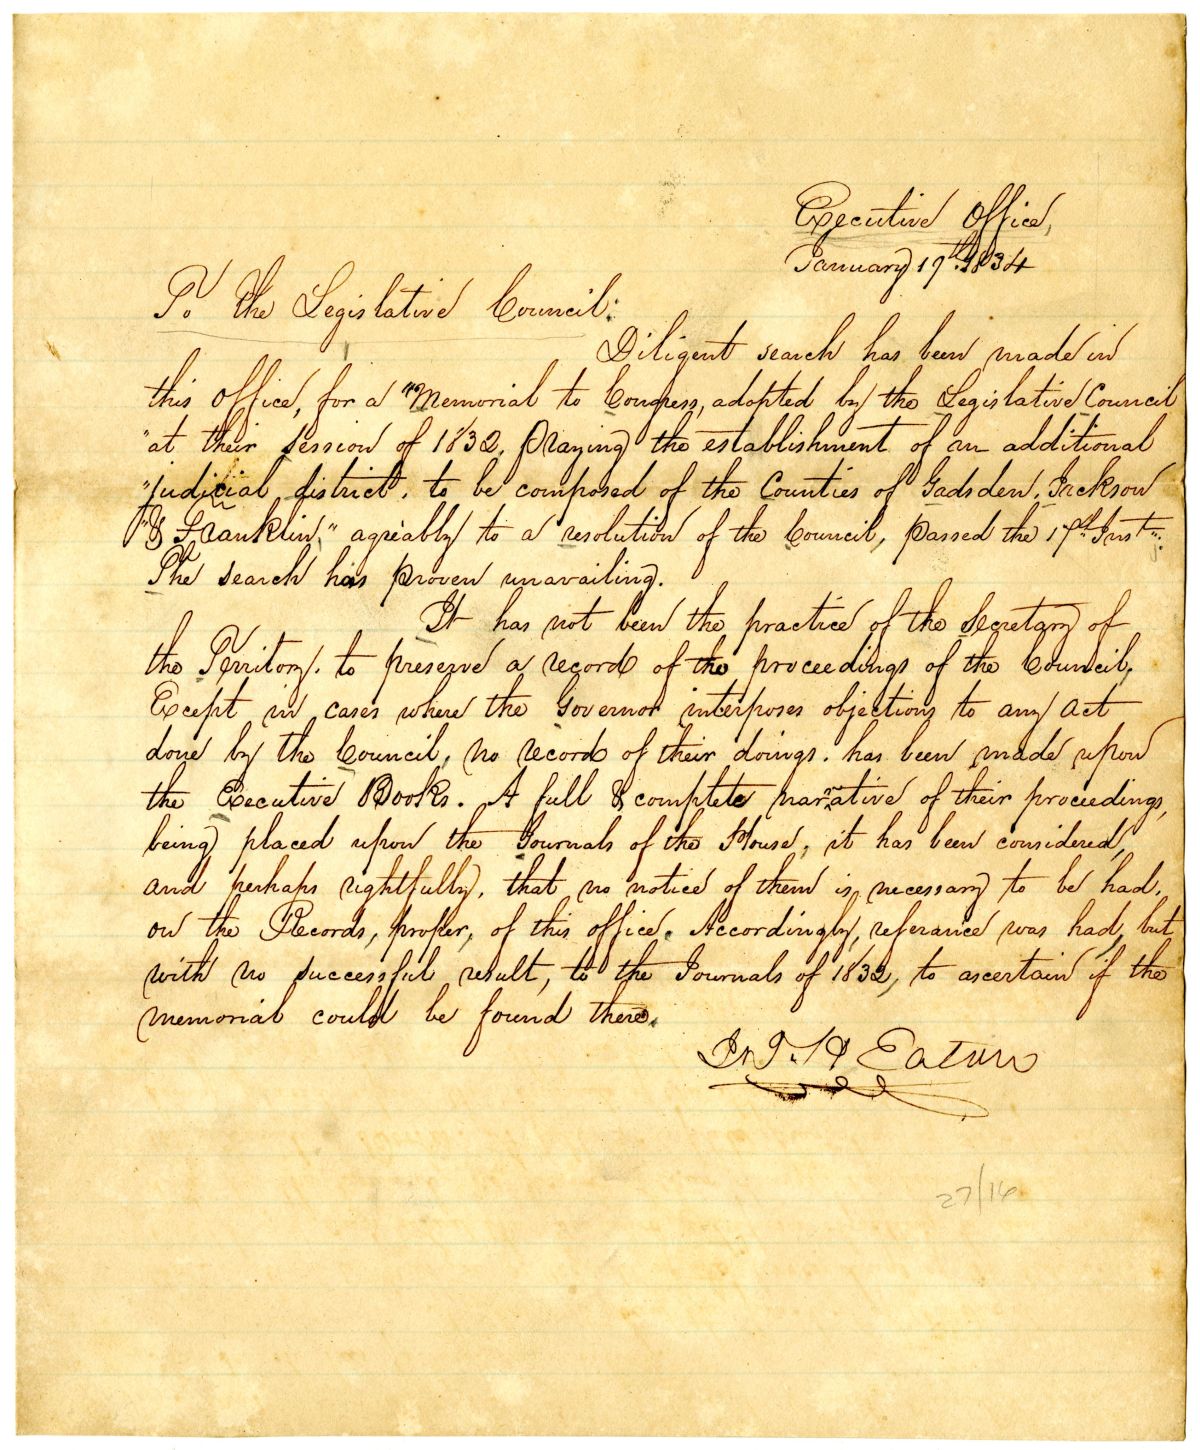 Executive Office,
January 17th 1834
To the Legislative Council:
Diligent search has been made in
this office, for a "Memorial to Congress, adopted by the Legislative Council
"at their session of 1832, praying the establishment of an additional
"judicial district, to be composed of the Counties of Gadsden, Jackson
"& Franklin," agreably to a resolution of the Council, passed the 17th Inst:
The search has proven unavailing.
It has not been the practice of the Secretary of
the Territory, to preserve a record of the proceedings of the Council,
Except in cases where the Governor interposes objections to any act
done by the Council, no record of their doings, has been made upon
the Executive Books. A full & complete narrative of their proceedings,
being placed upon the Journals of the House, it has been considered,
and perhaps rightfully, that no notice of them is necessary to be had,
on the Records, proper, of this office. Accordingly, referance was had, but
with no successful result, to the Journals of 1832, to ascertain if the
memorial could be found there.
Eaton
27/16